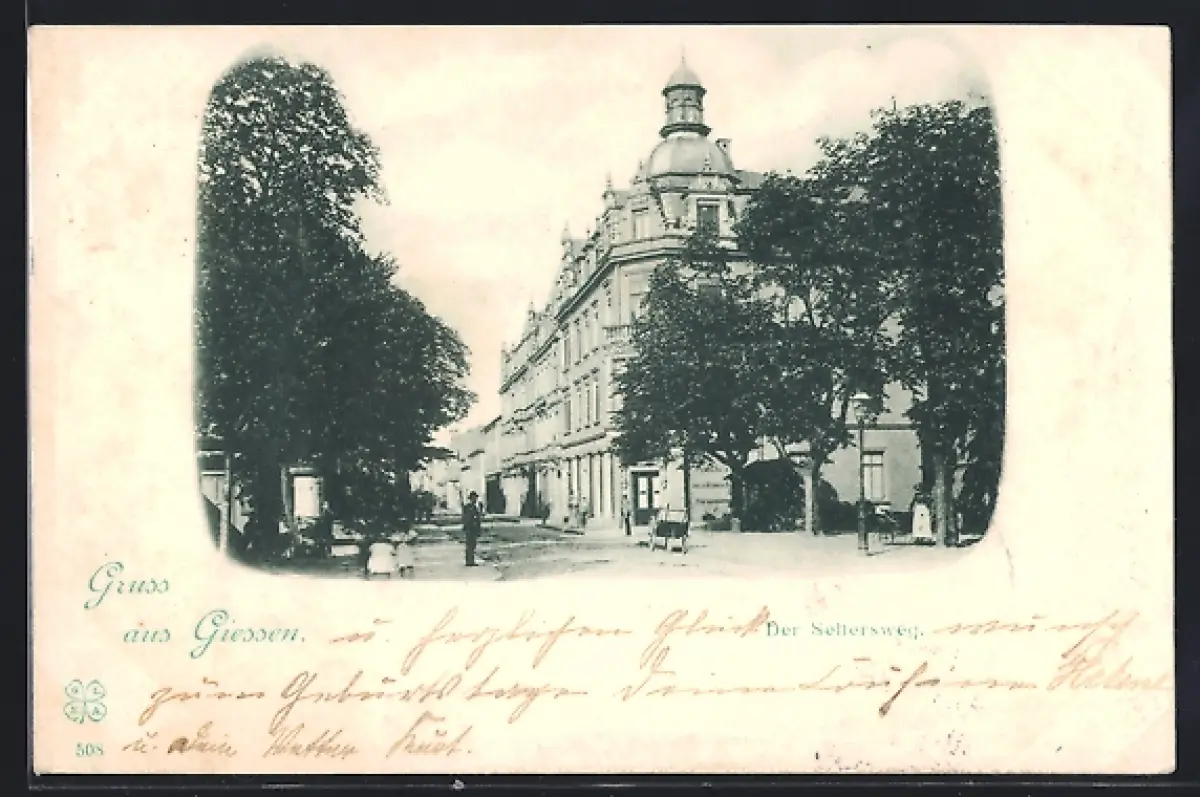 Gruss
aus Giessen.
Der Seltersweg.
u. herzlichen Glückwunsch
zum Geburtstage Deine Cousine Helene
u. Dein Vetter Kurt.
508